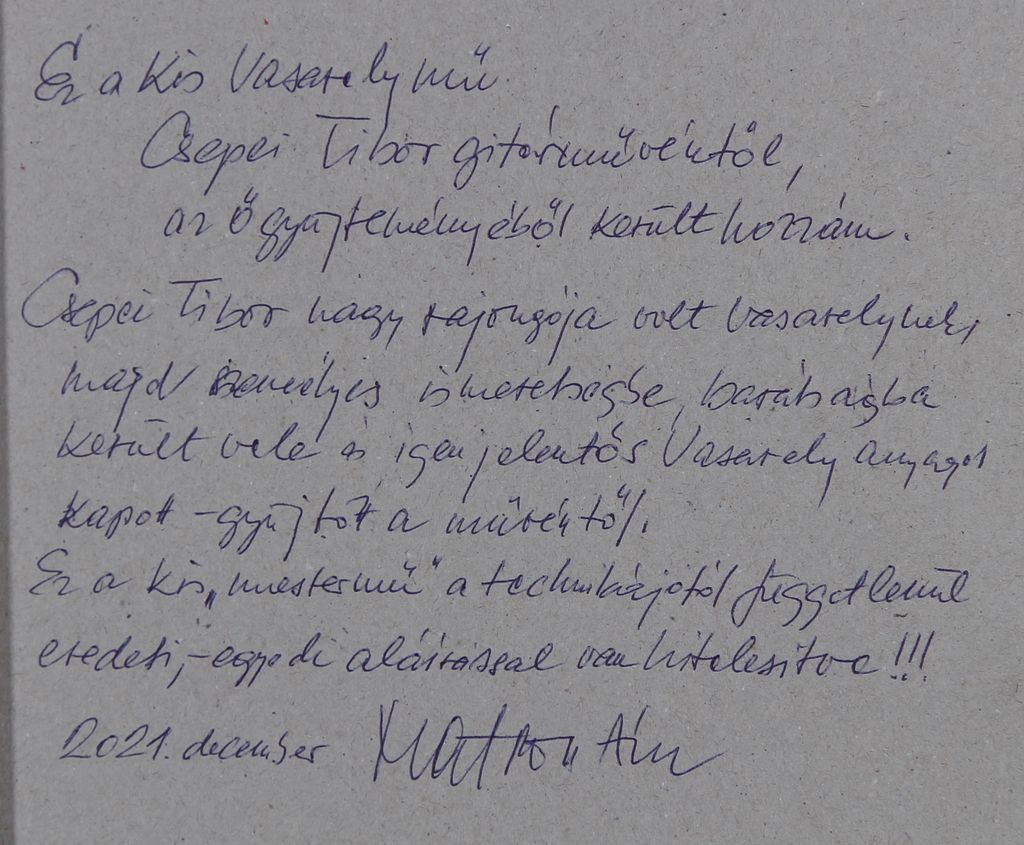 Ez a kis Vasarely mű
Csepei Tibor gitárművéntől,
az ő gyűjteményéből került hozzám.
Csepei Tibor nagy rajongója volt Vasarelynek,
majd személyes ismeretségbe, barátságba
került vele is igen jelentős Vasarely anyagot
kapott - gyűjtött a művéntől.
Ez a kis „mestermű" a technikájától függetlenül
eredeti, - egyedi aláírással van hitelesítve!!!
2021. december